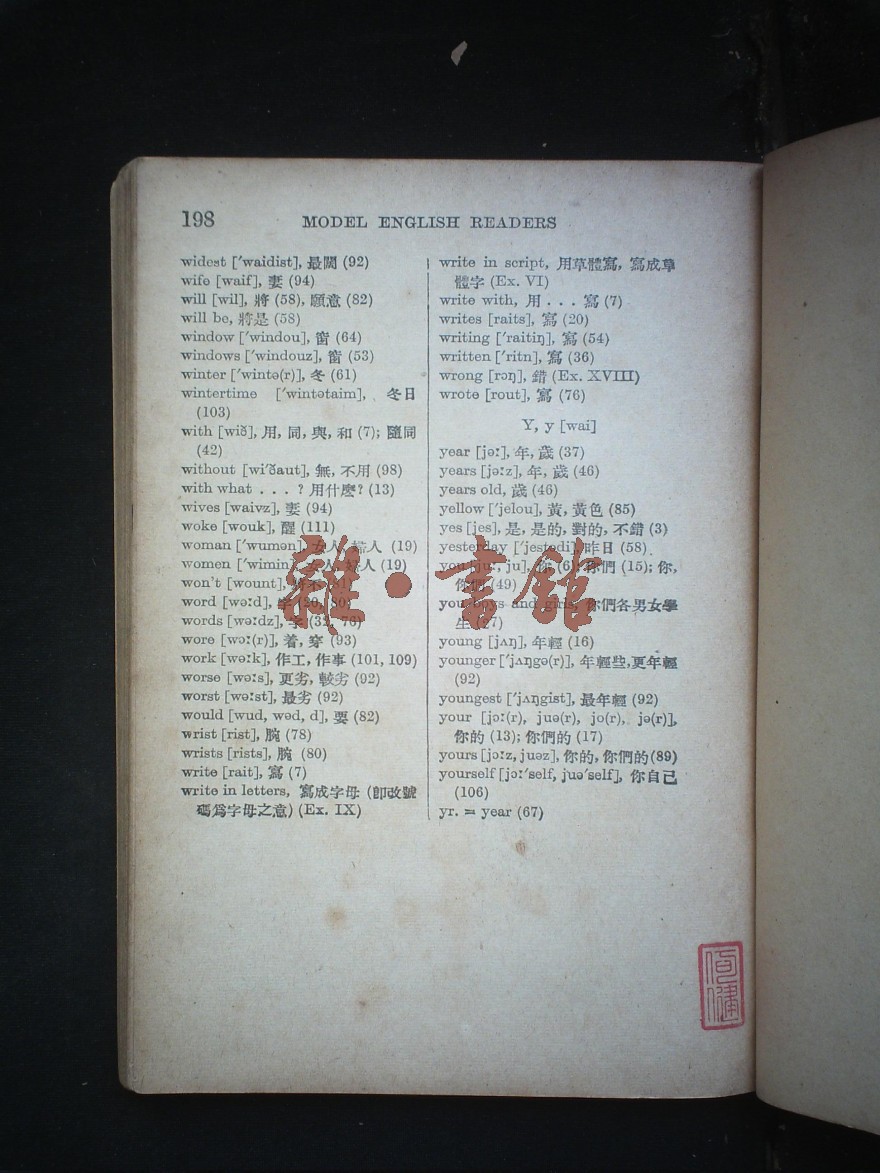 198
MODEL ENGLISH READERS
widest [′waidist], 最闊 (92)
wife [waif], 妻 (94)
will [wil], 將 (58), 願意 (82)
will be, 將是 (58)
window [′windou], 窗 (64)
windows [′windouz], 窗 (53)
winter [′wintə(r)], 冬 (61)
wintertime [′wintətaim], 冬日
(103)
with [wið], 用, 同, 與, 和 (7); 隨同
(42)
without [wi′ðaut], 無, 不用 (98)
with what . . . ? 用什麼? (13)
wives [waivz], 妻 (94)
woke [wouk], 醒 (111)
woman [′wumən], 女人, 婦人 (19)
women [′wimin], 女人, 婦人 (19)
won't [wount], 將不 (81)
word [wə:d], 字 (20, 80)
words [wə:dz], 字 (32, 76)
wore [wɔ:(r)], 着, 穿 (93)
work [wə:k], 作工, 作事 (101, 109)
worse [wə:s], 更劣, 較劣 (92)
worst [wə:st], 最劣 (92)
would [wud, wəd, d], 要 (82)
wrist [rist], 腕 (78)
wrists [rists], 腕 (80)
write [rait], 寫 (7)
write in letters, 寫成字母 (卽改號
碼爲字母之意) (Ex. IX)
write in script, 用草體寫, 寫成草
體字 (Ex. VI)
write with, 用 . . . 寫 (7)
writes [raits], 寫 (20)
writing [′raitiŋ], 寫 (54)
written [′ritn], 寫 (36)
wrong [rɔŋ], 錯 (Ex. XVIII)
wrote [rout], 寫 (76)
Y, y [wai]
year [jə:], 年, 歲 (37)
years [jə:z], 年, 歲 (46)
years old, 歲 (46)
yellow [′jelou], 黃, 黃色 (85)
yes [jes], 是, 是的, 對的, 不錯 (3)
yesterday [′jestədi], 昨日 (58)
you [ju:, ju], 你 (6); 你們 (15); 你,
你們 (49)
you boys and girls, 你們各男女學
生 (27)
young [jʌŋ], 年輕 (16)
younger [′jʌŋgə(r)], 年輕些, 更年輕
(92)
youngest [′jʌŋgist], 最年輕 (92)
your [jɔ:(r), juə(r), jo(r), jə(r)],
你的 (13); 你們的 (17)
yours [jɔ:z, juəz], 你的, 你們的 (89)
yourself [jɔ:′self, juə′self], 你自己
(106)
yr. = year (67)
雜·書館